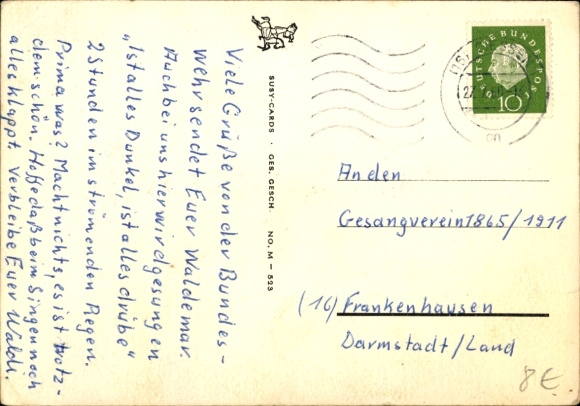 Viele Grüße von der Bundes-
wehr sendet Euer Waldemar.
Auch bei uns hier wird gesungen
"Ist alles Dunkel, ist alles drübe"
2 Stunden im strömenden Regen.
Prima was? Macht nichts, es ist trotz-
dem schön. Hoffe daß beim Singen noch
alles klappt. Verbleibe Euer Waldi.
SUSY-CARDS · GES. GESCH. NO. M - 523
DEUTSCHE BUNDESPOST
10
An den
Gesangverein 1865/1911
(16) Frankenhausen
Darmstadt/Land
8€.